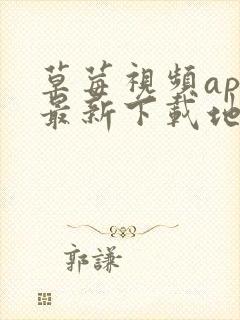 草莓視頻ap
最新下載地
郭謙